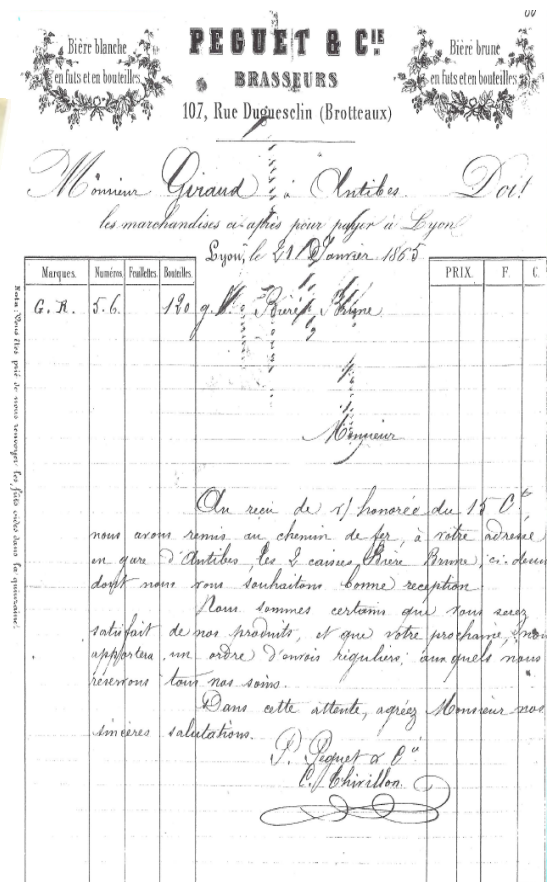 Bière blanche
en futs et en bouteilles
PEGUET & CIE
BRASSEURS
107, Rue Duguesclin (Brotteaux)
Bière brune
en futs et en bouteilles
Monsieur Giraud à Antibes. Doit
les marchandises ci-après pour payer à Lyon
Lyon, le 21 Janvier 1865
Marques. Numéros. Feuillettes. Bouteilles. PRIX. F. C.
G. R. 5.6. 120 Bière Brune
Monsieur
Au reçu de v/ honorée du 15 Ct
nous avons remis au chemin de fer, à votre adresse
en gare d'Antibes, les 2 caisses Bière Brune, ci-dessus
dont nous vous souhaitons bonne reception
Nous sommes certains que vous serez
satisfait de nos produits, et que votre prochaine, nous
apportera un ordre d'envois réguliers, auxquels nous
réservons tous nos soins.
Dans cette attente, agréez Monsieur nos
sincères salutations.
P. Peguet & Cie
C. Thivillon
Nota: Vous êtes prié de nous renvoyer les futs vides dans la quinzaine.